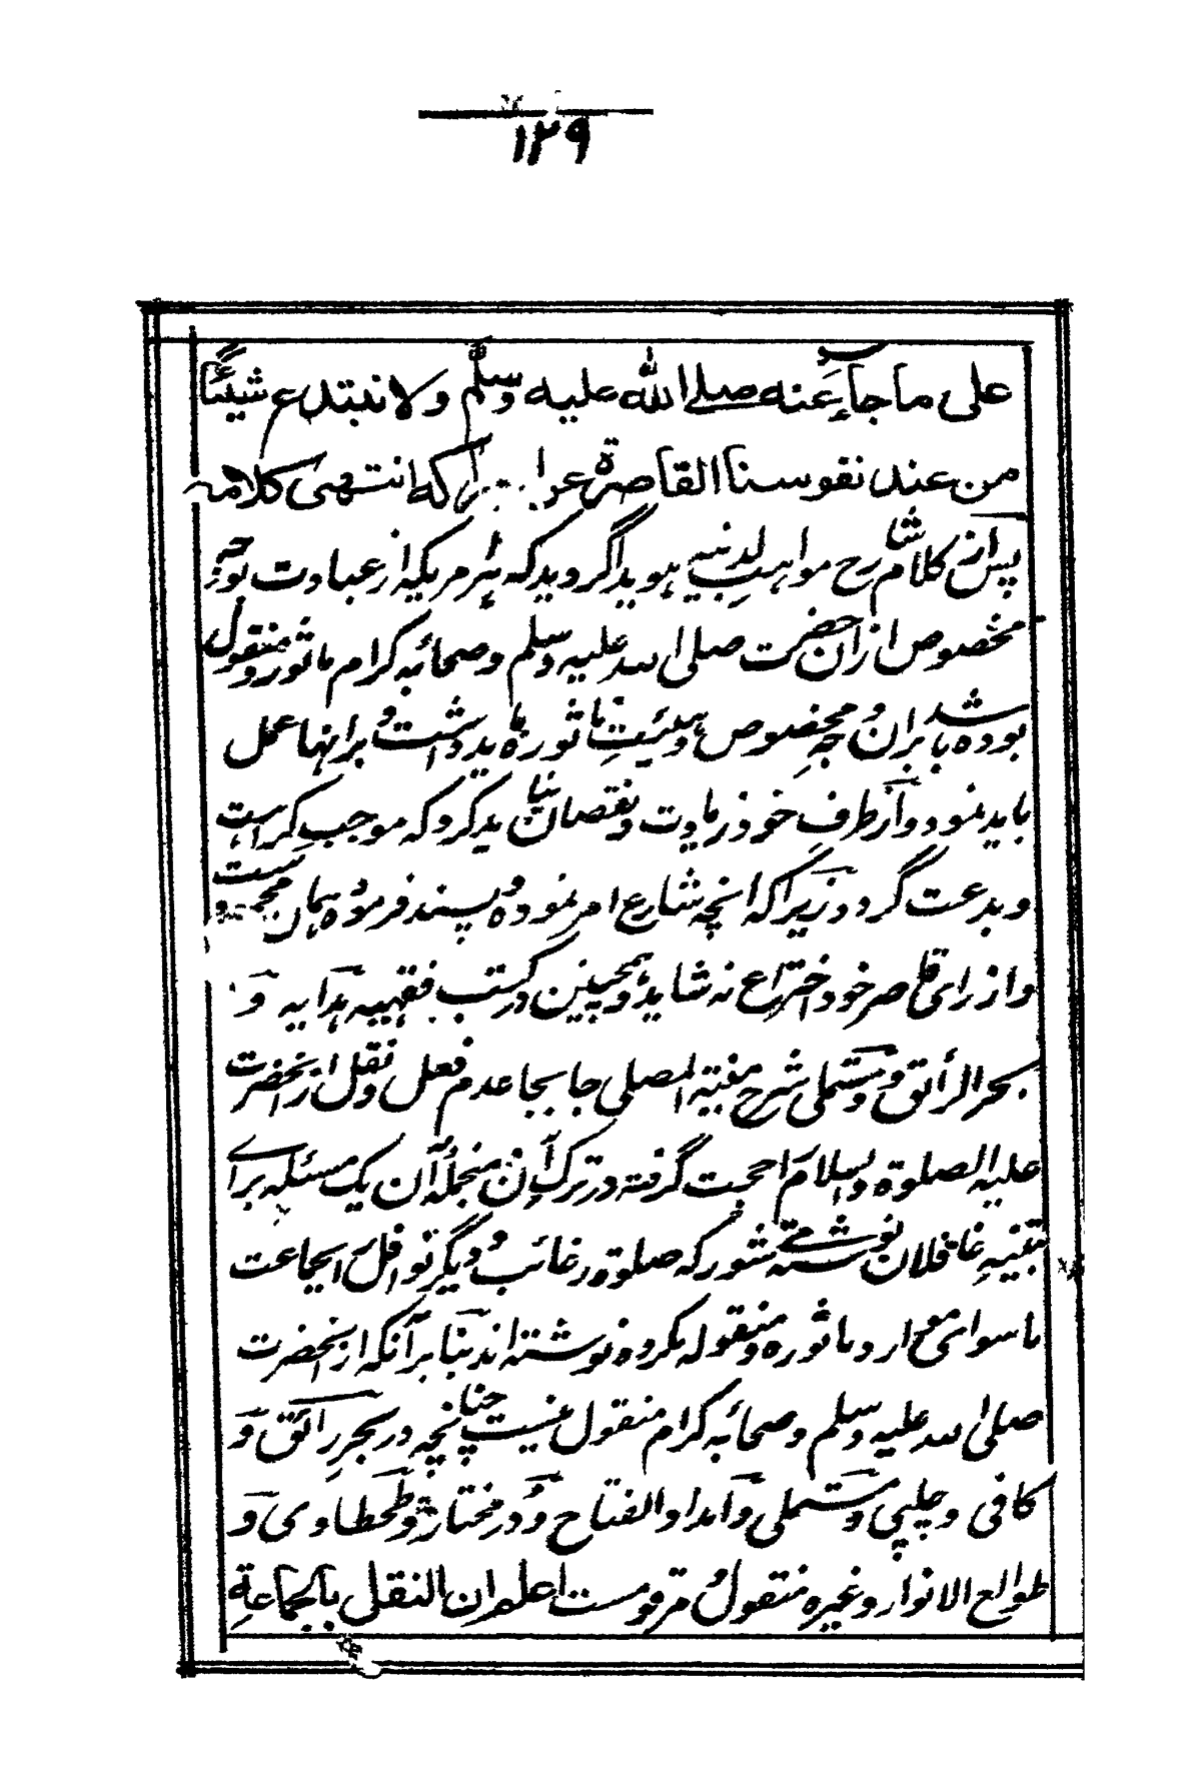 ۱۲۹
على ما جاء عنه صلے الله عليه وسلم ولا نبتدع شيئًا
من عند نفوسنا القاصرة انتهى كلامه
پس ازین کلام شارح مواهب لدنیه هویدا گردید که هر امریکه از عبادت بوجه
مخصوص ازان حضرت صلی الله علیه وسلم و صحابه کرام ماثور و منقول
بوده باشد بران وجه مخصوص و هیئت ماثوره باید داشت و برانها عمل
باید نمود و از طرف خود زیادت و نقصان نباید کرد که موجب کراهت
و بدعت گردد زیرا که انچه شارع امر نموده و پسند فرموده همان
و از رای قاصر خود اختراع نه شاید و همچنین در کتب فقهیه هدایه و
بحر الرائق و مستملی شرح منیة المصلی جا بجا عدم فعل و نقل از آنحضرت
علیه الصلوة والسلام احجت گرفته در ترک آن من جمله آن یک مسئله برای
تنبیه غافلان نوشته می شود که صلوة رغائب و دیگر نوافل بجماعت
ما سوای ماثوره و منقوله مکروه نوشته اند بنا بر آنکه از آنحضرت
صلی الله علیه وسلم و صحابه کرام منقول نیست چنانچه در بحر رائق و
کافی و چلپی و مستملی و امداد الفتاح و در مختار و طحطاوی و
طوالع الانوار و غیره منقول و مرقومست اعلم ان النفل بالجماعة